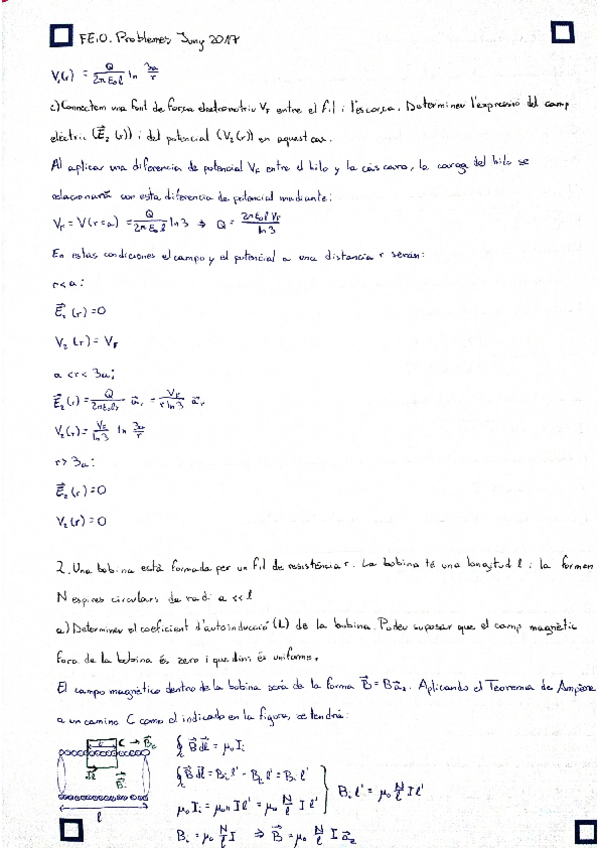 FEiO. Problemes Juny 2017
V₁(r) = Q/(2πε₀l) ln 3a/r
c) Connectem una font de força electromotriu V_F entre el fil i l'escorça. Determineu l'expressió del camp
elèctric (E⃗₂(r)) i del potencial (V₂(r)) en aquest cas.
Al aplicar una diferencia de potencial V_F entre el hilo y la cáscara, la carga del hilo se
relacionará con esta diferencia de potencial mediante:
V_F = V(r=a) = Q/(2πε₀l) ln 3 ⇒ Q = 2πε₀l V_F/ln 3
En estas condiciones el campo y el potencial a una distancia r serán:
r<a:
E⃗₂(r)=0
V₂(r)= V_F
a<r<3a:
E⃗₂(r) = Q/(2πε₀lr) a⃗ᵣ = V_F/(r ln 3) a⃗ᵣ
V₂(r) = V_F/ln 3 ln 3a/r
r>3a:
E⃗₂(r)=0
V₂(r)=0
2. Una bobina està formada per un fil de resistència r. La bobina té una longitud l i la formen
N espires circulars de radi a<<l
a) Determineu el coeficient d'autoinducció (L) de la bobina. Podeu suposar que el camp magnètic
fora de la bobina és zero i que dins és uniforme.
El campo magnético dentro de la bobina será de la forma B⃗=Ba⃗_z. Aplicando el Teorema de Ampère
a un camino C como el indicado en la figura, se tendrá:
l' C → B⃗ₑ
dl⃗ B⃗ᵢ
l
∮_C B⃗ dl⃗ = μ₀Iᵢ
∮_C B⃗ dl⃗ = Bᵢl' - Bₑl' = Bᵢl'
μ₀Iᵢ = μ₀nIl' = μ₀ N/l I l'
Bᵢl' = μ₀ N/l I l'
Bᵢ = μ₀ N/l I ⇒ B⃗ = μ₀ N/l I a⃗_z